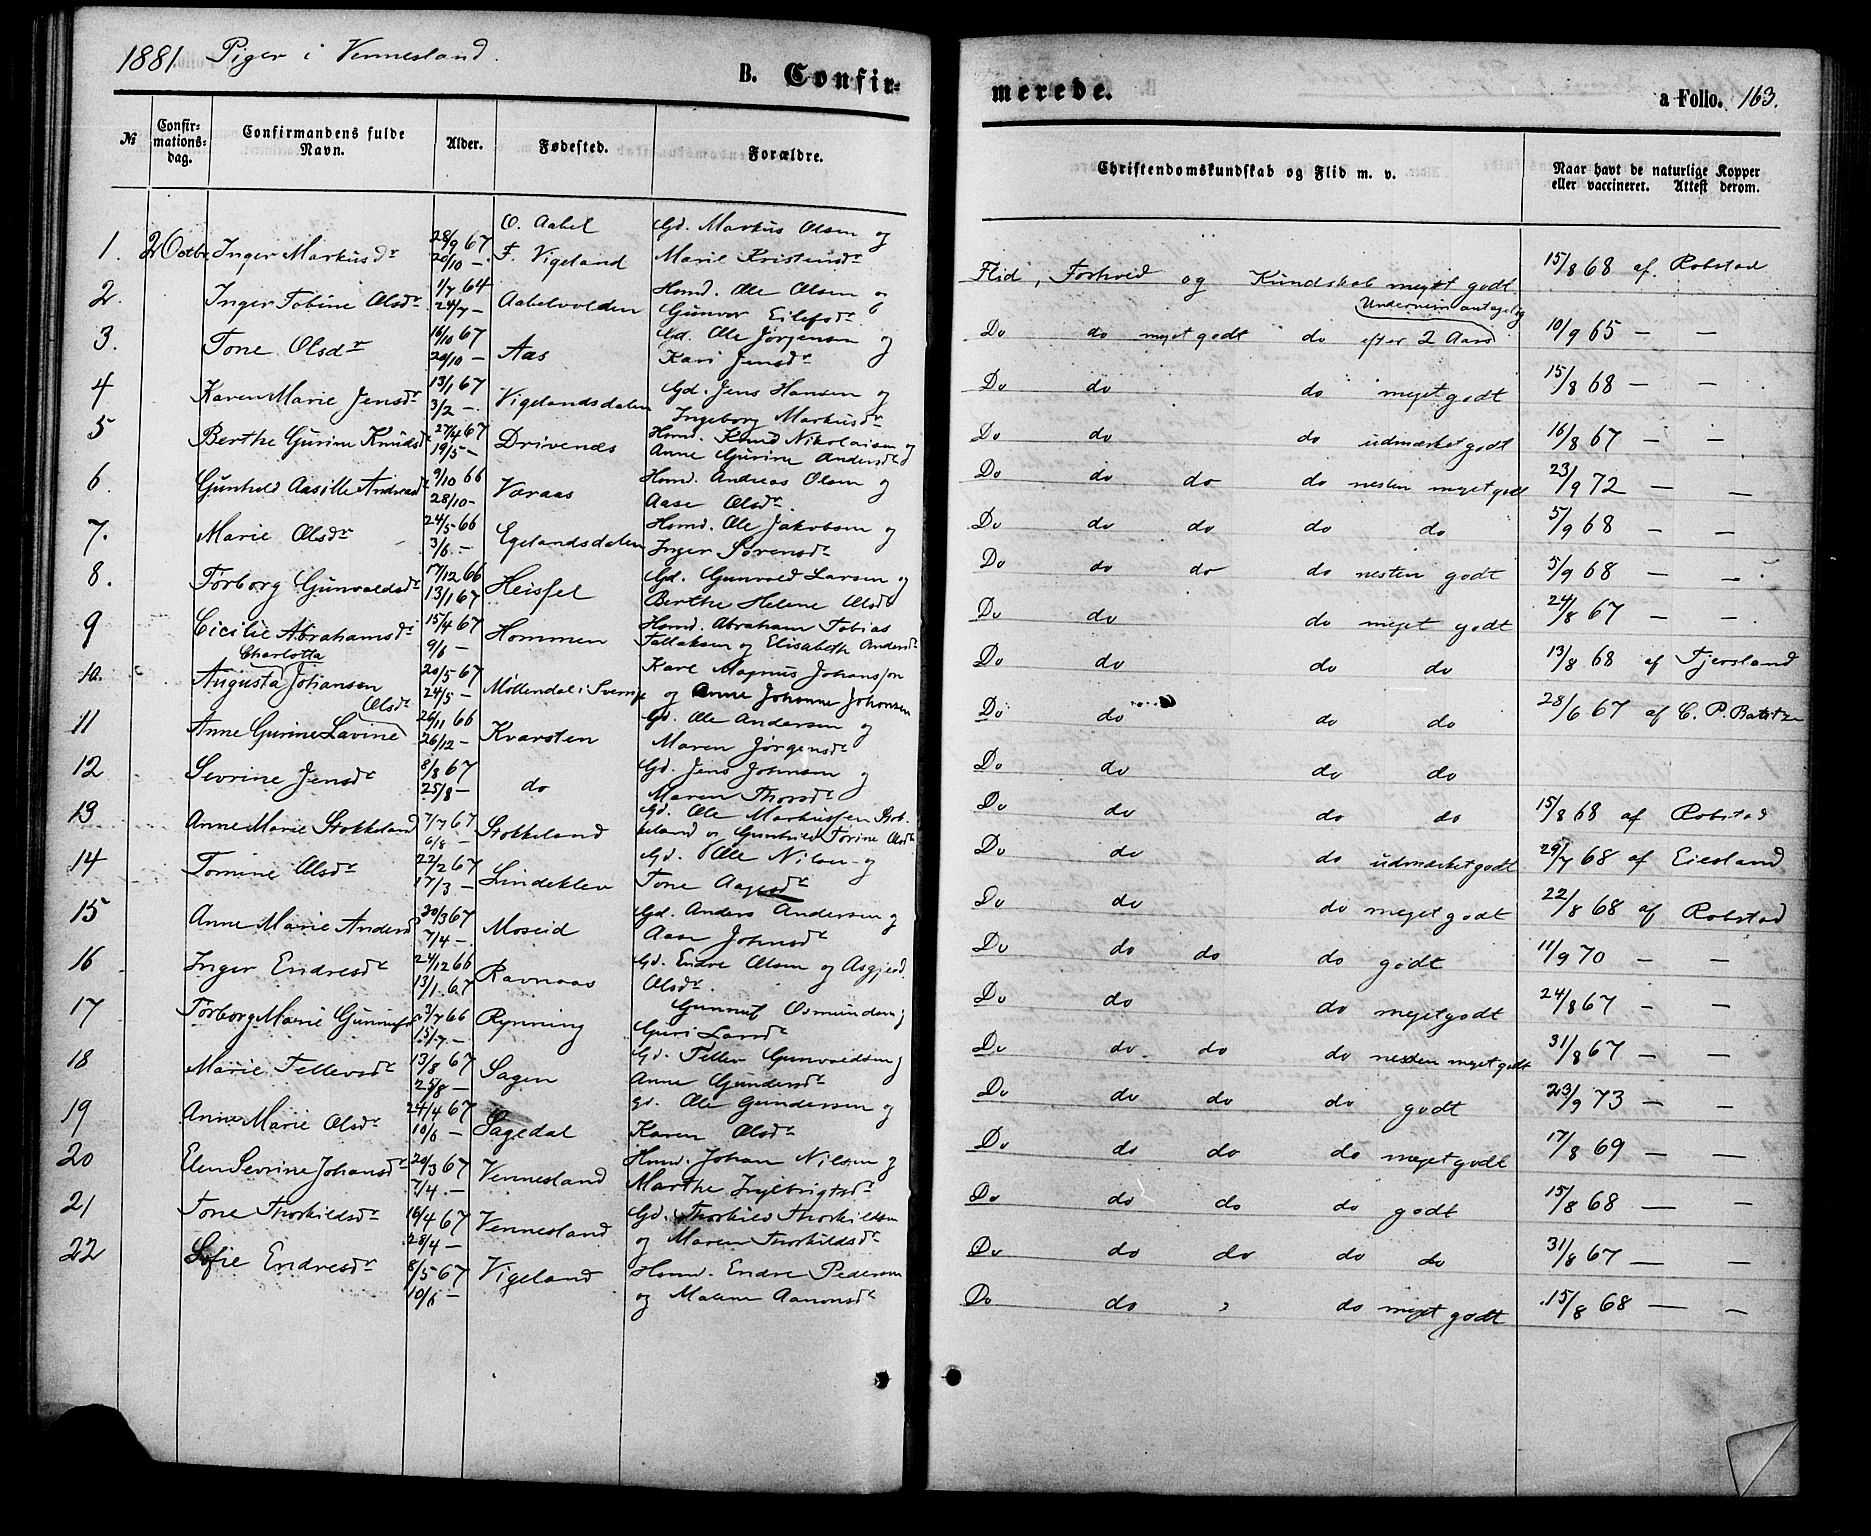 1881. Piger i Vennesland.
B. Confir-
merede.
a Folio. 163.
№ Confir-mations-dag. Confirmandens fulde Navn. Alder. Fødested. Forældre.
Christendomskundskab og Flid m. v. Naar havt de naturlige Kopper eller vaccineret. Attest derom.
1. 2 Octbr. Inger Markusdr 28/9 67 20/10 — O. Aabel F. Vigeland Gd. Markus Olsen og Marie Kristensdr Flid, Forhold og Kundskab meget godt 15/8 68 af Robstad
2. Inger Tobine Olsdr 1/7 64 24/7 — Aabelvolden Hsmd. Ole Olsen og Gunvor Eilefsdr Do do meget godt do efter 2 Aars Underviisn 10/9 65 — —
3. Tone Olsdr 16/10 67 20/10 — Aas Gd. Ole Jørgensen og Kari Jensdr Do do do meget godt 15/8 68 — —
4 Karen Marie Jensdr 13/1 67 3/2 — Vigelandsdalen Gd. Jens Hansen og Ingeborg Markusdr Do do do udmærket godt 16/8 67 — —
5 Berthe Gurine Knudsdr 27/4 67 19/5 — Drivenes Hsmd. Knud Nikolaisen og Anne Gurine Andersdr Do do do do nesten meget godt 23/9 72 — —
6. Gunhild Aasille Andreasdr 9/10 66 28/10 — Væraas Hsmd. Andreas Olsen og Aase Olsdr. Do do do do do 5/9 68 — —
7. Marie Olsdr 24/5 66 3/6 — Egelandsdalen Hsmd. Ole Jakobsen og Inger Sørensdr Do do do do nesten godt 5/9 68 — —
8. Torborg Gunvaldsdr 17/12 66 13/1 67 Heisel Gd. Gunvald Larsen og Berthe Helene Olsdr Do do do meget godt 24/8 67 — —
9 Cicilie Abrahamsdr 15/4 67 9/6 — Hommen Hsmd. Abraham Tobias Tallaksen og Elisabeth Andersdr Do do do do 13/8 68 af Fjersland
10. Augusta Charlotta Johansen 20/5 67 24/5 — Møllendal i Sverrige Karl Magnus Johansson og Anne Johanne Johansen Do do do do 28/6 67 af C. P.
11 Anne Gurine Lavine Olsdr 26/11 66 26/12 — Kvarsten Gd. Ole Andersen og Maren Jørgensdr Do do do do
12 Sevrine Jensdr 8/8 67 25/8 — do Gd. Jens Johnsen og Maren Thorsdr Do do do do 15/8 68 af Robstad
13 Anne Marie Stokkeland 7/7 67 6/8 — Stokkeland Gd. Ole Markussen Stokkeland og Gunhild Torine Olsdr Do do do udmærket godt 29/7 68 af Eiesland
14 Tomine Olsdr 22/2 67 17/3 — Lindeklev Gd. Ole Nilsen og Tone Aagesdr Do do do meget godt 22/8 68 af Robstad
15 Anne Marie Andersd 20/3 67 7/4 — Moseid Gd. Anders Andersen og Aase Johnsdr Do do do do godt 11/9 70 — —
16 Inger Endresdr 24/12 66 13/1 67 Ravnaas Gd. Endre Olsen og Asgjerd Olsdr. Do do do meget godt 24/8 67 — —
17 Torborg Marie Gunnufsd 3/7 66 15/7 — Rynning Gunnuf Osmundsen og Guri Larsdr Do do do do nesten meget godt 31/8 67 — —
18 Marie Tellevsdr 13/8 67 25/8 — Sagen Gd. Tellev Gunvaldsen og Anne Gundersdr Do do do do godt 23/9 73 — —
19 Anne Marie Olsdr 24/4 67 10/6 — Sagedal Gd. Ole Gundersen og Karen Olsdr Do do do do meget godt 17/8 69 — —
20 Elen Sevrine Johansdr 20/3 67 7/4 — Vennesland Hsmd. Johan Nilsen og Marthe Ingebrigtsdr Do do do do godt 15/8 68 — —
21 Tone Thorkildsdr 16/4 67 28/4 — Vennesland Gd. Thorkild Thorkildsen og Maren Thorkildsdr Do do do do do 31/8 67 — —
22 Sofie Endresdr 8/5 67 10/6 — Vigeland Hsmd. Endre Pedersen og Malene Aanonsdr Do do do meget godt 15/8 68 — —